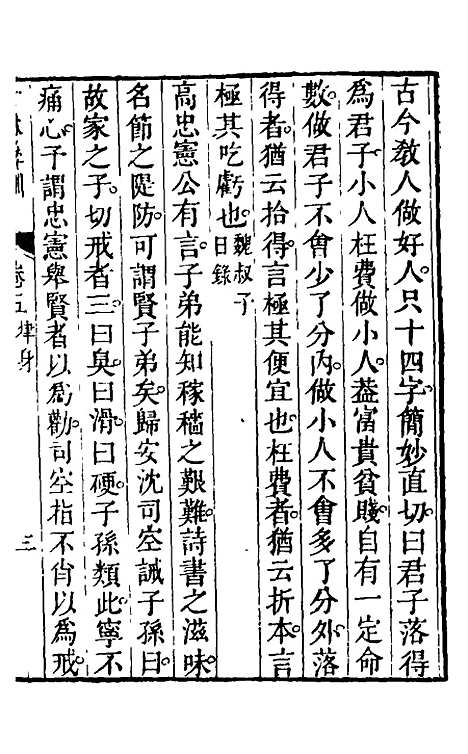 古今敎人做好人。只十四字。簡妙直切。曰君子落得
爲君子。小人枉費做小人。葢富貴貧賤。自有一定命
數。做君子不曾少了分內。做小人不曾多了分外。落
得者。猶云拾得。言極其便宜也。枉費者。猶云折本。言
極其吃虧也。魏叔子日錄
高忠憲公有言。子弟能知稼穡之艱難。詩書之滋味。
名節之隄防。可謂賢子弟矣。歸安沈司空誡子孫曰。
故家之子。切戒者三。曰臭。曰滑。曰硬。子孫類此。寧不
痛心。予謂忠憲舉賢者以爲勸。司空指不肖以爲戒。
卷五律身
三